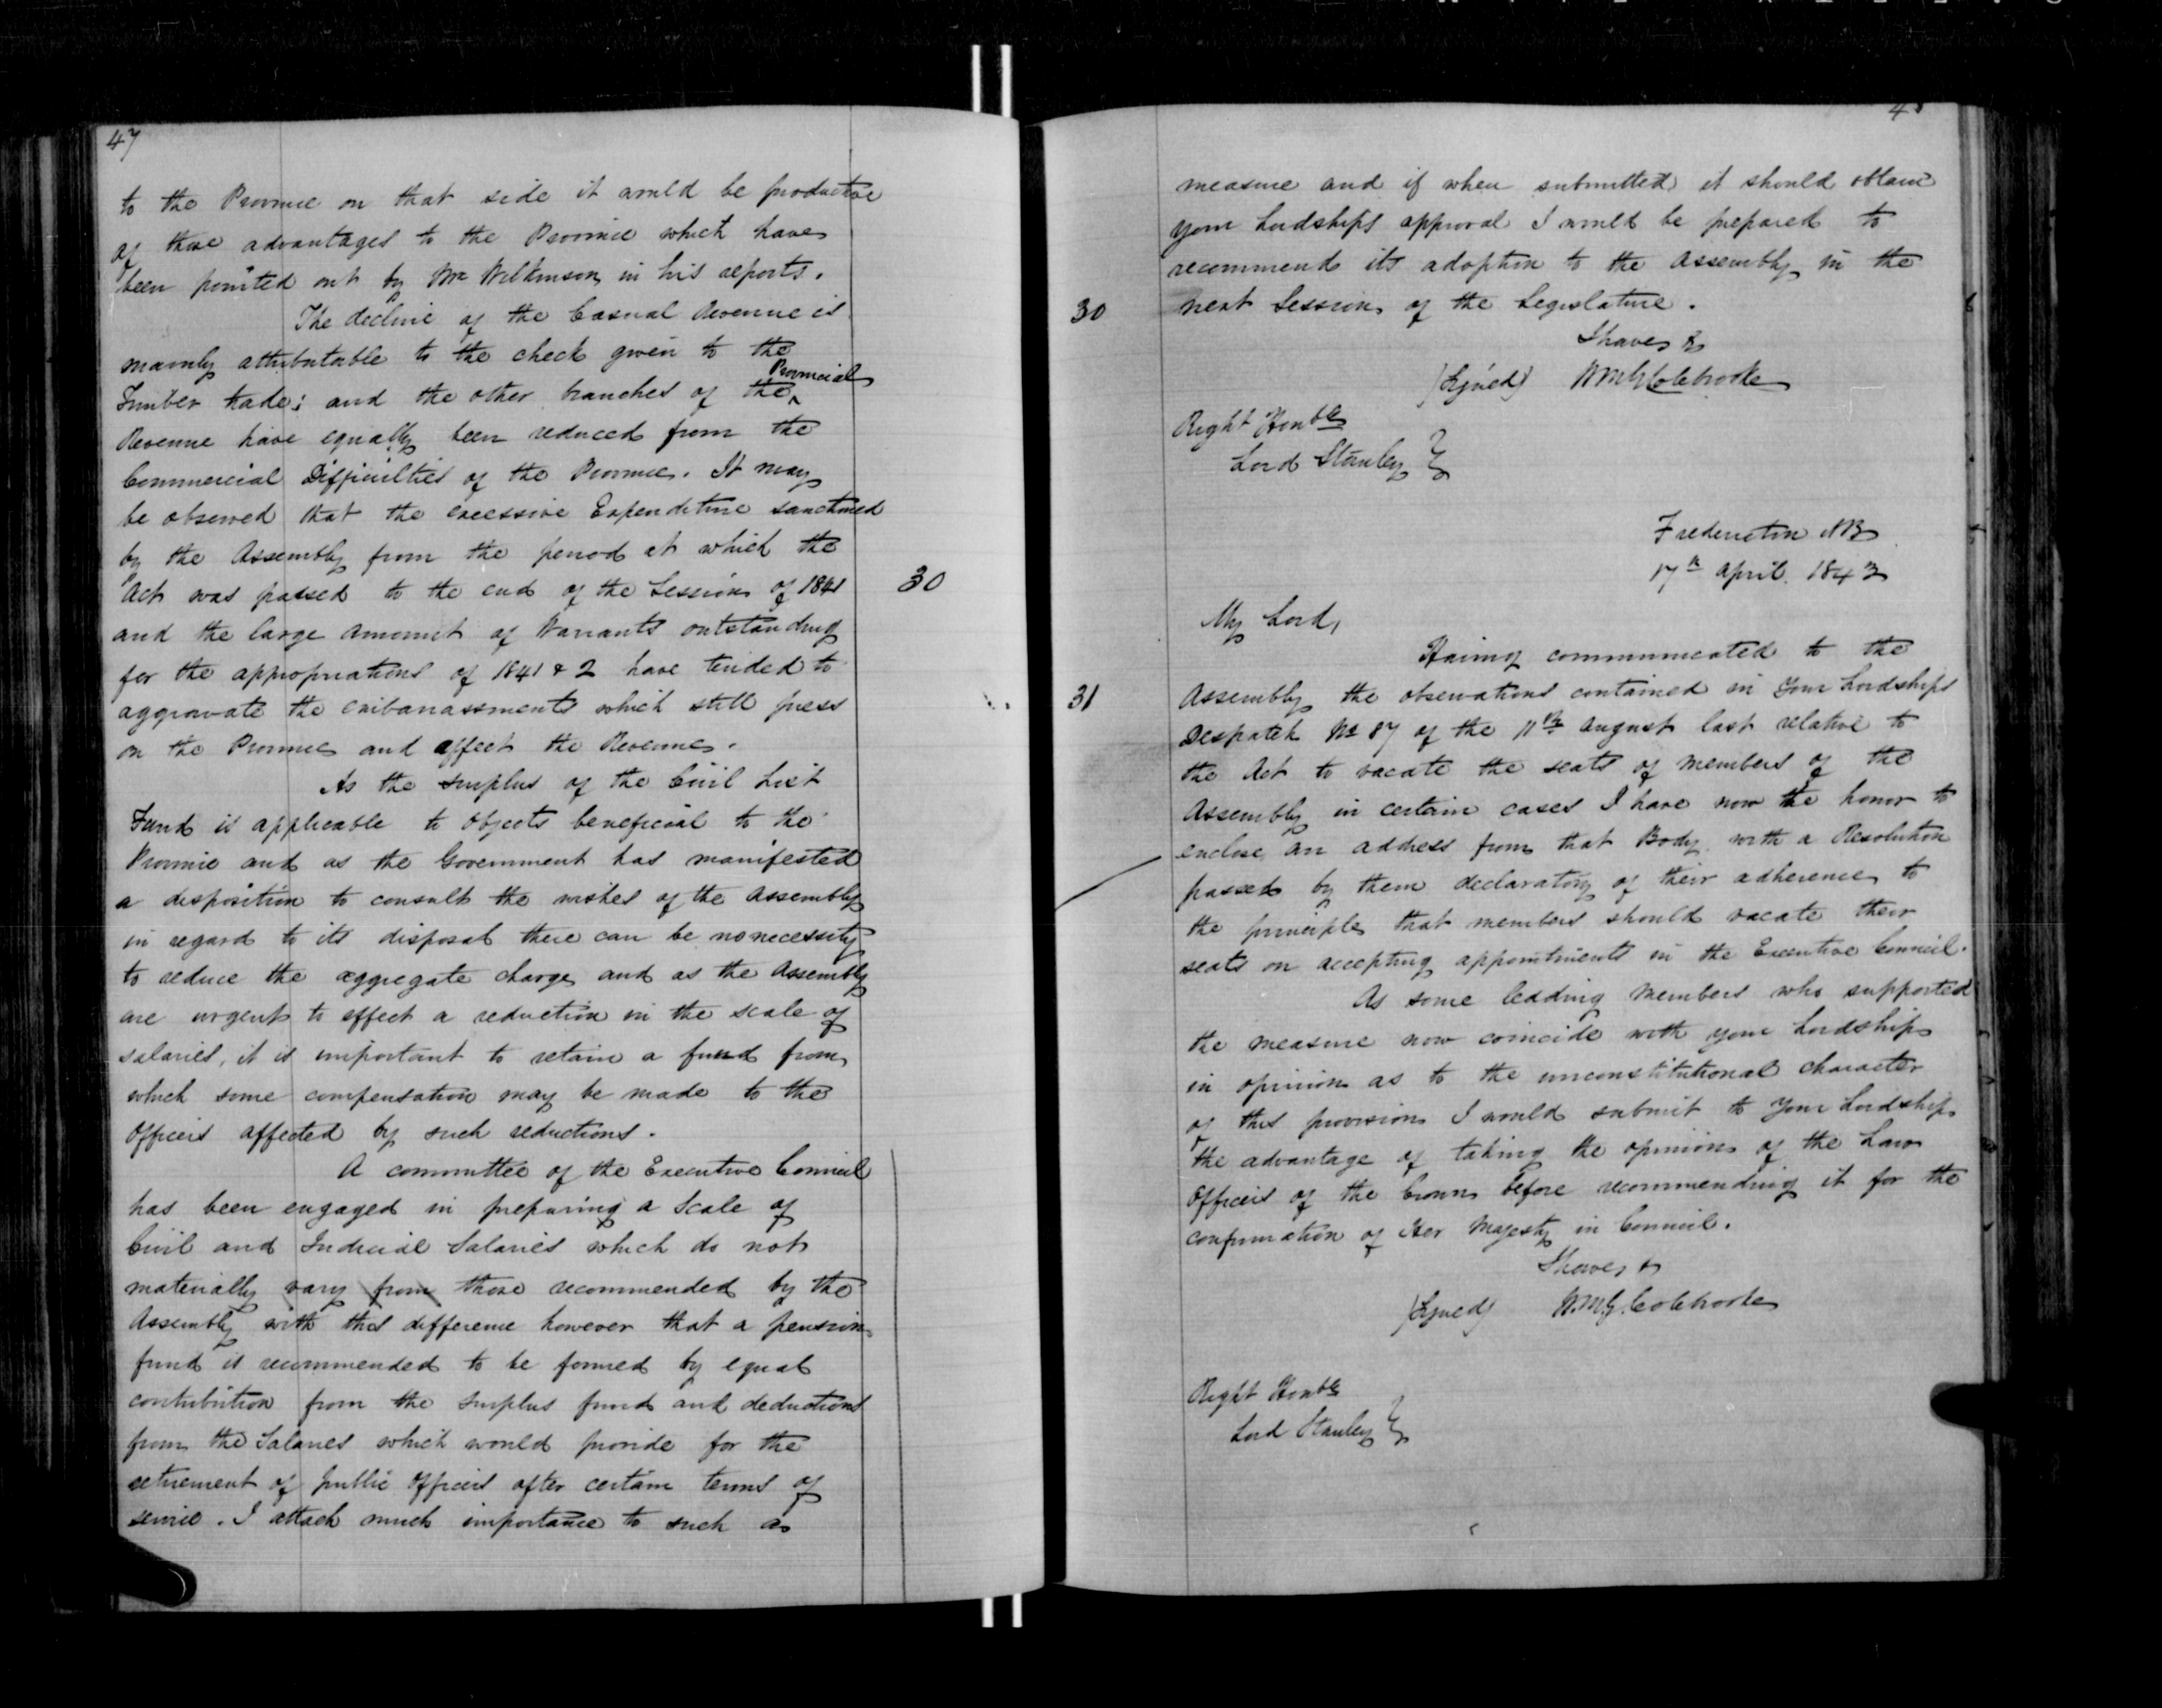 47
to the Province on that side it would be productive
of those advantages to the Province which have
been pointed out by Mr Wilkinson in his reports.
The decline of the Casual Revenue is
mainly attributable to the check given to the
Timber trade; and the other branches of the Provincial
Revenue have equally been reduced from the
Commercial Difficulties of the Province. It may
be observed that the excessive Expenditure sanctioned
by the Assembly from the period at which the
Act was passed to the end of the Session of 1841
30
and the large amount of Warrants outstanding
for the appropriations of 1841 & 2 have tended to
aggravate the embarrassments which still press
on the Province and affect the Revenue.
As the surplus of the Civil List
Fund is applicable to objects beneficial to the
Province and as the Government has manifested
a disposition to consult the wishes of the Assembly
in regard to its disposal there can be no necessity
to reduce the aggregate charge and as the Assembly
are urgent to effect a reduction in the scale of
salaries, it is important to retain a fund from
which some compensation may be made to the
Officers affected by such reductions.
A committee of the Executive Council
has been engaged in preparing a Scale of
Civil and Judicial Salaries which do not
materially vary from those recommended by the
Assembly with this difference however that a pension
fund is recommended to be formed by equal
contribution from the surplus fund and deductions
from the Salaries which would provide for the
retirement of public Officers after certain terms of
service. I attach much importance to such a
measure and if when submitted it should obtain
your Lordships approval I would be prepared to
recommend its adoption to the Assembly in the
30
next Session of the Legislature.
I have &
(Signed) WMG Colebrooke
Right Honble
Lord Stanley }
Fredericton NB
17th April. 1843
My Lord,
Having communicated to the
31
Assembly the observations contained in your Lordships
Despatch No 87 of the 11th August last relative to
the Act to vacate the seats of members of the
Assembly in certain cases I have now the honor to
enclose an address from that Body with a Resolution
passed by them declaratory of their adherence to
the principle that members should vacate their
seats on accepting appointments in the Executive Council.
As some leading members who supported
the measure now coincide with your Lordship
in opinion as to the unconstitutional character
of this provision I would submit to your Lordship
the advantage of taking the opinion of the Law
Officers of the Crown before recommending it for the
confirmation of Her Majesty in Council.
I have &
(Signed) W.M.G. Colebrooke
Right Honble
Lord Stanley }